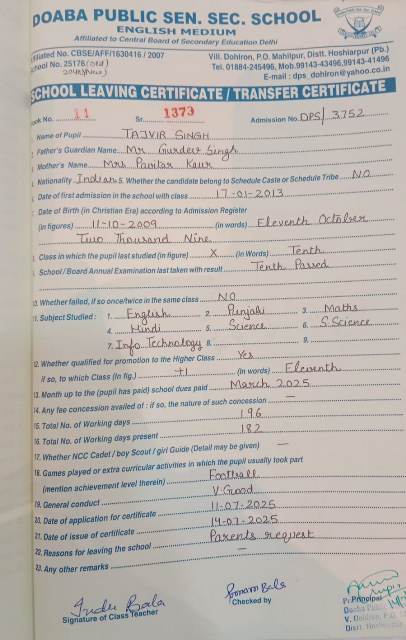 DOABA PUBLIC SEN. SEC. SCHOOL
ENGLISH MEDIUM
Affiliated to Central Board of Secondary Education Delhi
Affiliated No. CBSE/AFF/1630416 / 2007
School No. 25178 (old)
20489 (New)
Vill. Dohlron, P.O. Mahilpur, Distt. Hoshiarpur (Pb.)
Tel. 01884-245496, Mob.99143-43496,99143-41496
E-mail : dps_dohlron@yahoo.co.in
SCHOOL LEAVING CERTIFICATE / TRANSFER CERTIFICATE
Book No. 11 Sr. 1373 Admission No. DPS/3752
Name of Pupil TAJVIR SINGH
Father's Guardian Name Mr. Gurdev Singh
Mother's Name Mrs Pavitar Kaur
Nationality Indian 5. Whether the candidate belong to Schedule Caste or Schedule Tribe NO
Date of first admission in the school with class 17-01-2013
Date of Birth (in Christian Era) according to Admission Register
(in figures) 11-10-2009 (in words) Eleventh October
Two Thousand Nine
Class in which the pupil last studied (in figure) X (in Words) Tenth
School / Board Annual Examination last taken with result Tenth Passed
10. Whether failed, if so once/twice in the same class NO
11. Subject Studied : 1. English 2. Punjabi 3. Maths
4. Hindi 5. Science 6. S.Science
7. Info Technology 8. 9.
12. Whether qualified for promotion to the Higher Class Yes
if so, to which Class (in fig.) +1 (in words) Eleventh
13. Month up to the (pupil has paid) school dues paid March 2025
14. Any fee concession availed of : if so, the nature of such concession —
15. Total No. of Working days 196
16. Total No. of Working days present 182
17. Whether NCC Cadet / boy Scout / girl Guide (Detail may be given) —
18. Games played or extra curricular activities in which the pupil usually took part
(mention achievement level therein) Football
19. General conduct V.Good
20. Date of application for certificate 11-07-2025
21. Date of issue of certificate 14-07-2025
22. Reasons for leaving the school Parents request
23. Any other remarks —
Indu Bala
Signature of Class Teacher
Bala
Checked by
Principal
Doaba Public
V. Dohlron, P.O.
Distt. Hoshiarpur